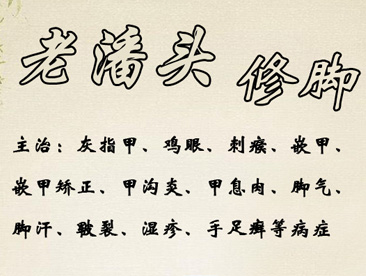 老潘头 修脚
主治：灰指甲、鸡眼、刺瘊、嵌甲、
嵌甲矫正、甲沟炎、甲息肉、脚气、
脚汗、皲裂、湿疹、手足癣等病症